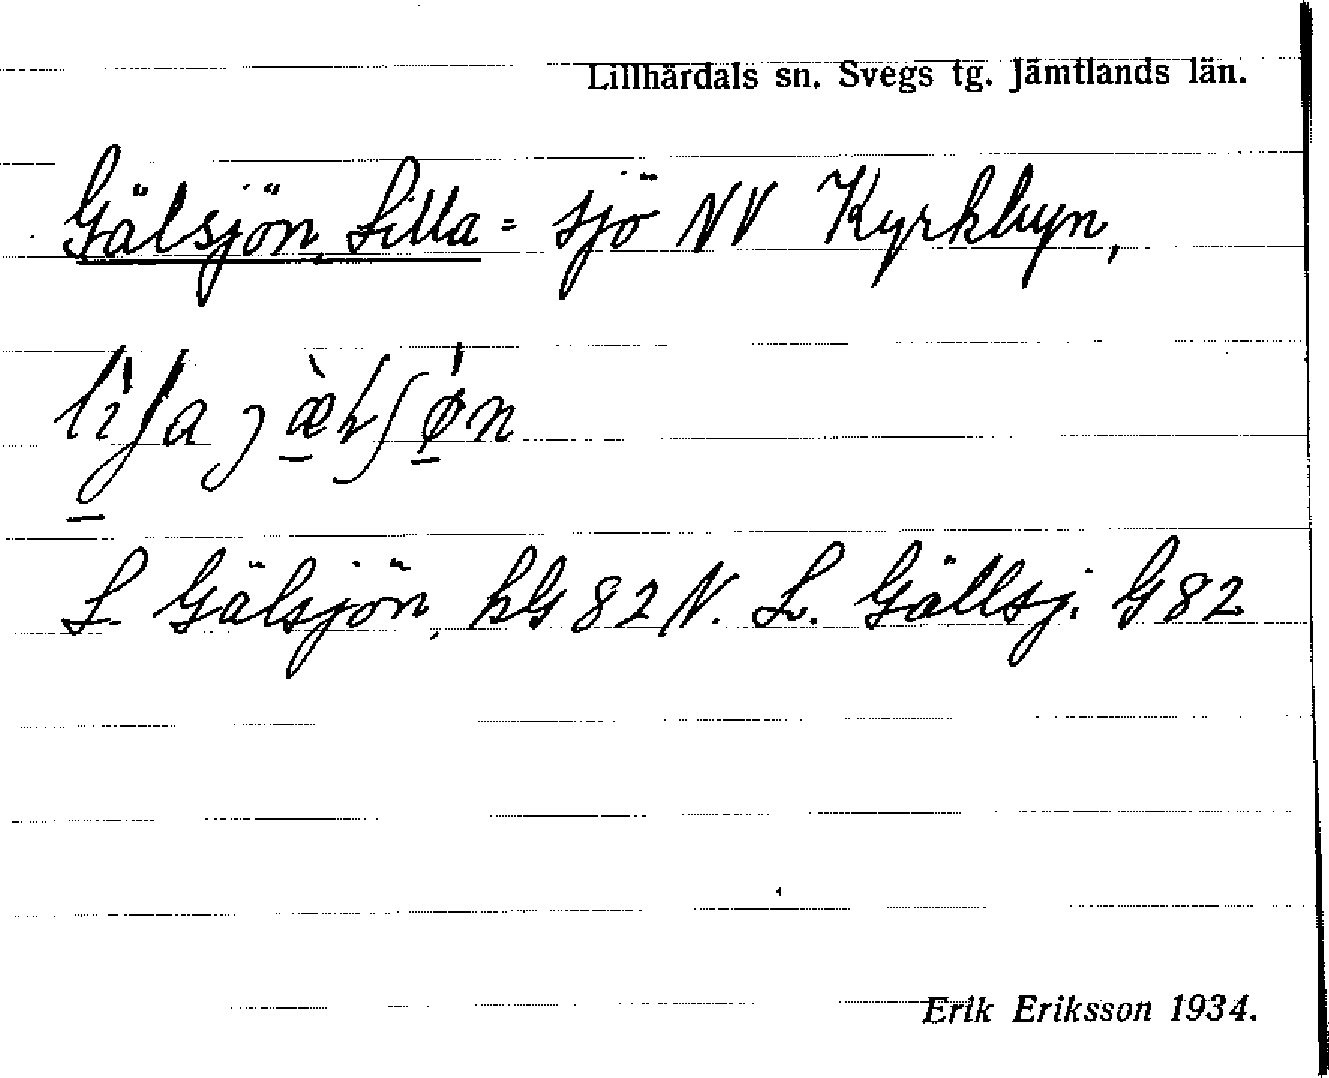 Lillhärdals sn. Svegs tg. Jämtlands län.
Gälsjön, Lilla = sjö NV Kyrkbyn,
L. Gälsjön, hG 82 N. L. Gällsj. G 82
Erik Eriksson 1934.